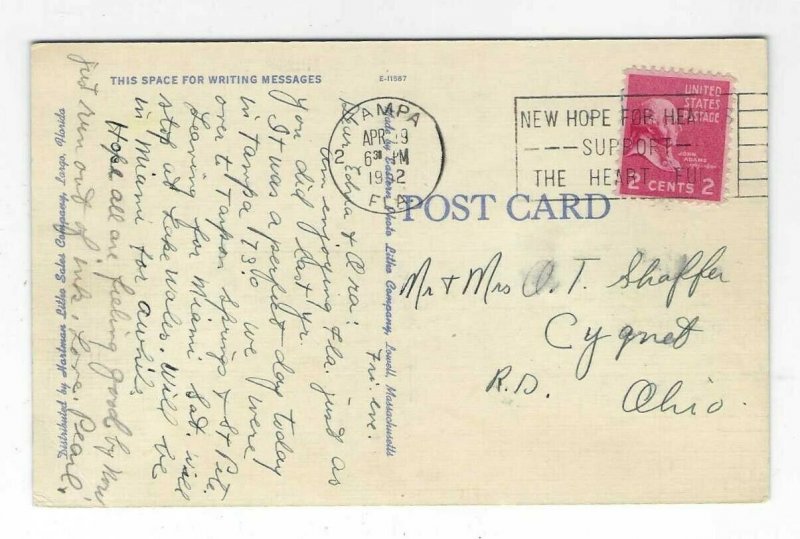 THIS SPACE FOR WRITING MESSAGES
E-11587
Fri. eve.
Dear Edna & Ora:
Am enjoying Fla. just as
you did last yr.
It was a perfect day today
in Tampa 73° we were
over to Tarpon Springs & St Pete.
Leaving for Miami Sat. will
stop at Lake Wales. Will be
in Miami for awhile.
Hope all are feeling good by now
Just run out of ink. Love, Pearl.
Distributed by Hartman Litho Sales Company, Largo, Florida
Made by Eastern Photo Litho Company, Lowell, Massachusetts
TAMPA
APR 19
6 30 PM
2
FLA
NEW HOPE FOR HEARTS
SUPPORT
THE HEART FUND
UNITED
STATES
POSTAGE
JOHN
ADAMS
2 CENTS 2
POST CARD
Mr + Mrs O. T. Shaffer
Cygnet
R.D. Ohio.